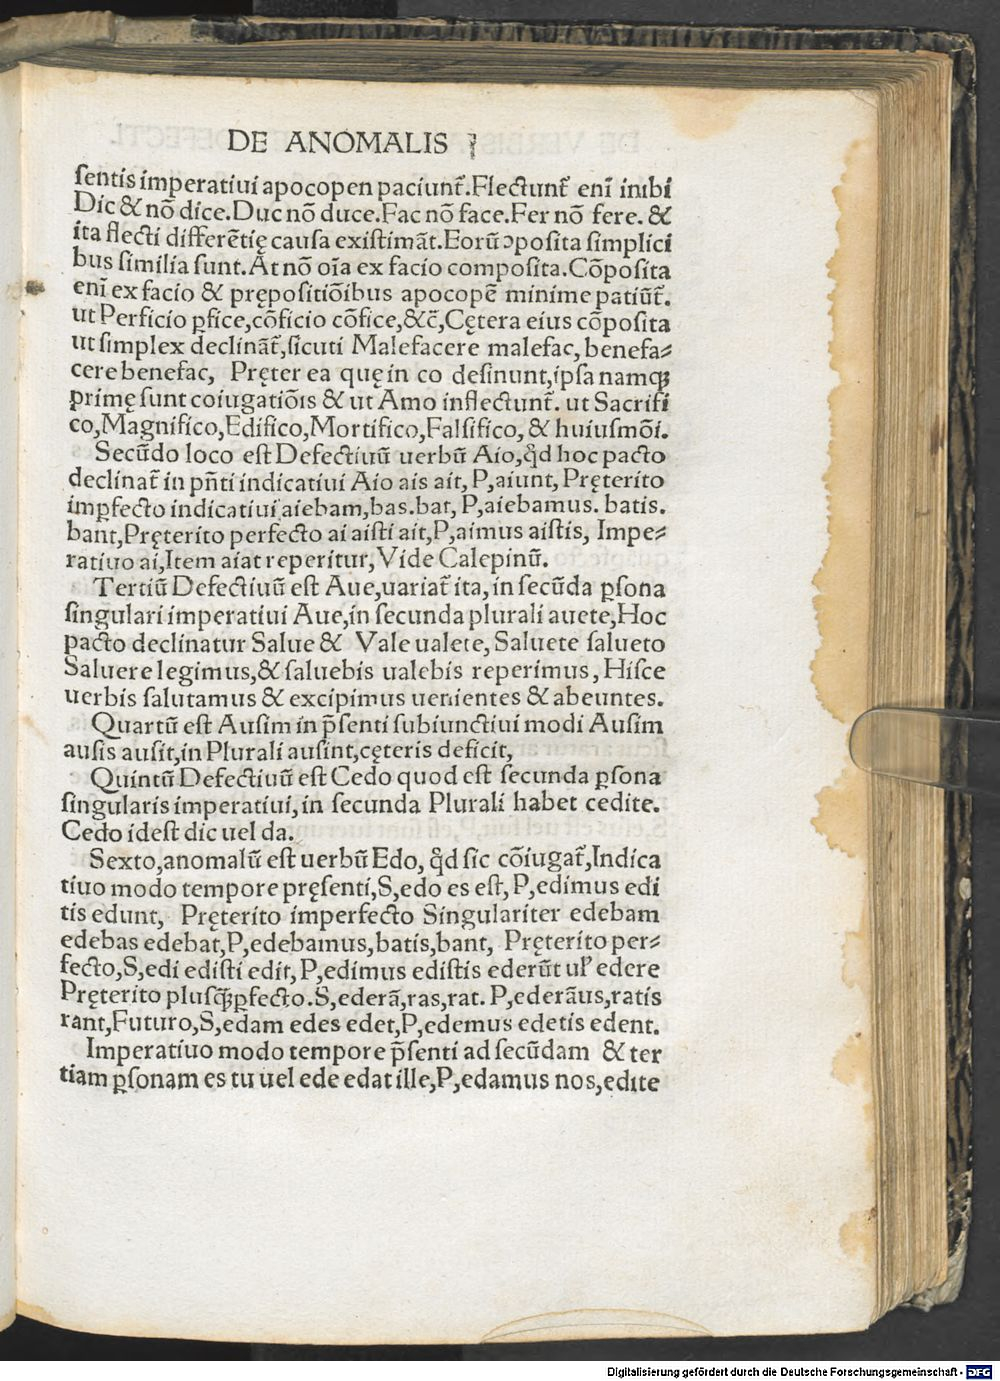 DE ANOMALIS
ſentis imperatiui apocopen paciunt᷑.Flectunt᷑ enī inibi
Dic & nō dice.Duc nō duce.Fac nō face.Fer nō fere. &
ita flecti differētię cauſa exiſtimāt.Eorū ↄpoſita ſimplici
bus ſimilia ſunt.At nō oīa ex facio compoſita.Cōpoſita
enī ex facio & prępoſitiōibus apocopē minime patiūt᷑.
ut Perficio ꝑfice,cōficio cōfice,&c̄,Cętera eius cōpoſita
ut ſimplex declināt᷑,ſicuti Malefacere malefac, benefa⸗
cere benefac, Pręter ea quę in co deſinunt,ipſa namqꝫ
primę ſunt coiugatiōis & ut Amo inflectunt᷑. ut Sacrifi
co,Magnifico,Edifico,Mortifico,Falſifico, & huiuſmōi.
Secūdo loco eſt Defectiuū uerbū Aio,qd̉ hoc pacto
declinat᷑ in pn̄ti indicatiui Aio ais ait, P,aiunt, Pręterito
imꝑfecto indicatiui aiebam,bas.bat, P,aiebamus. batis.
bant,Pręterito perfecto ai aiſti ait,P,aimus aiſtis, Impe⸗
ratiuo ai,Item aiat reperitur, Vide Calepinū.
Tertiū Defectiuū eſt Aue,uariat᷑ ita, in ſecūda ꝑſona
ſingulari imperatiui Aue,in ſecunda plurali auete,Hoc
pacto declinatur Salue & Vale ualete, Saluete ſalueto
Saluere legimus,& ſaluebis ualebis reperimus, Hiſce
uerbis ſalutamus & excipimus uenientes & abeuntes.
Quartū eſt Auſim in p̄ſenti ſubiunctiui modi Auſim
auſis auſit,in Plurali auſint,cęteris deficit,
Quintū Defectiuū eſt Cedo quod eſt ſecunda ꝑſona
ſingularis imperatiui, in ſecunda Plurali habet cedite.
Cedo ideſt dic uel da.
Sexto,anomalū eſt uerbū Edo, qd̉ ſic cōiugat᷑,Indica
tiuo modo tempore pręſenti,S,edo es eſt, P,edimus edi
tis edunt, Pręterito imperfecto Singulariter edebam
edebas edebat,P,edebamus,batis,bant, Pręterito per⸗
fecto,S,edi ediſti edit, P,edimus ediſtis ederūt ul᷑ edere
Pręterito pluſqꝫꝑfecto.S,ederā,ras,rat. P,ederāus,ratis
rant,Futuro,S,edam edes edet,P,edemus edetis edent.
Imperatiuo modo tempore p̄ſenti ad ſecūdam & ter
tiam ꝑſonam es tu uel ede edat ille,P,edamus nos,edite
Digitalisierung gefördert durch die Deutsche Forschungsgemeinschaft - DFG